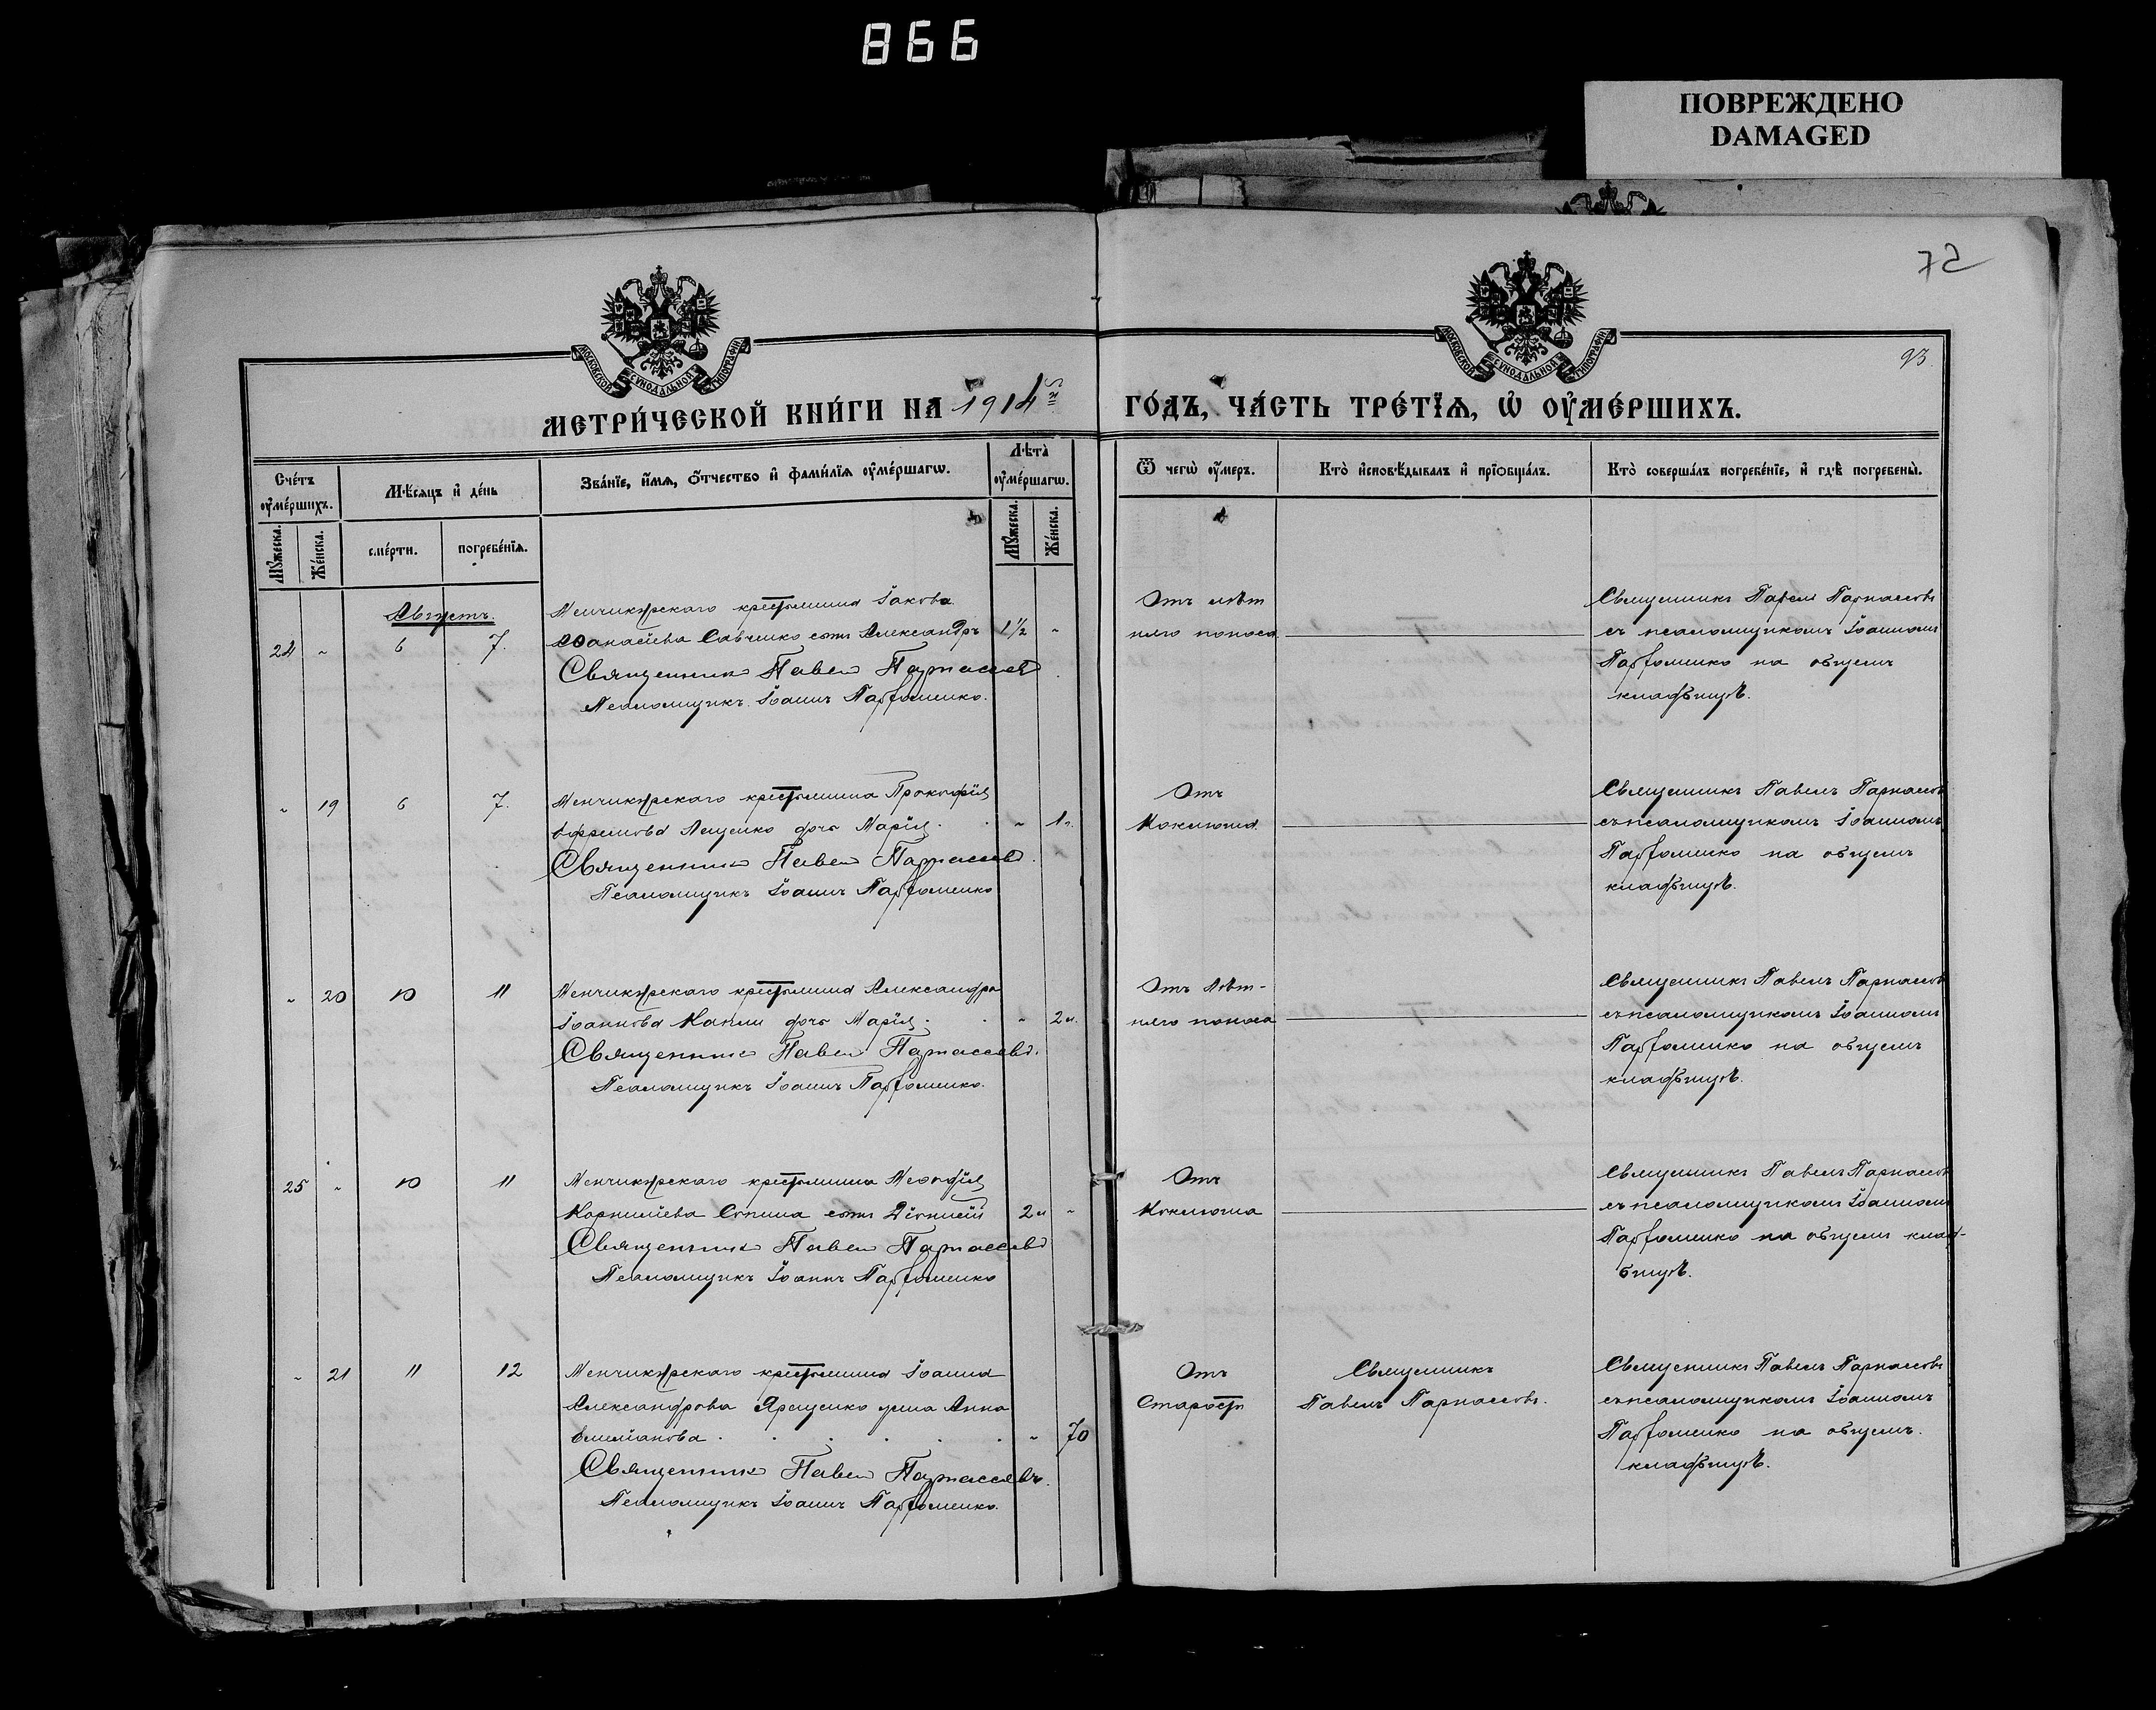 866
ПОВРЕЖДЕНО
DAMAGED
72
93.
МОСКОВСКОЙ СѴНОДАЛЬНОЙ ТИПОГРАФІИ
МОСКОВСКОЙ СѴНОДАЛЬНОЙ ТИПОГРАФІИ
МЕТРИ́ЧЕСКОЙ КНИ́ГИ НА 1914й
ГО́ДЪ, ЧА́СТЬ ТРЕ́ТЇѦ, Ѡ҆ ОУ҆МЕ́РШИХЪ.
Сче́тъ оу҆ме́ршихъ.
Мꙋ́жеска.
Же́нска.
Мѣ́сяцъ и҆ де́нь
сме́рти.
погребе́нїѧ.
Зва́нїе, и҆́мѧ, ѻ҆́тчество и҆ фами́лїѧ оу҆ме́ршагѡ.
Лѣта̀ оу҆ме́ршагѡ.
Мꙋ́жеска.
Же́нска.
Ѿ чегѡ̀ оу҆́меръ.
Кто̀ и҆сповѣ́дывалъ и҆ прїѡбща́лъ.
Кто̀ соверша́лъ погребе́нїе, и҆ гдѣ̀ погребены̀.
Августъ.
24 " 6 7.
Менчикурскаго крестьянина Іакова
Аѳанасіева Савченко сынъ Александръ 1½ "
Священникъ Павелъ Парнассовъ
Псаломщикъ Іоаннъ Парфоменко.
Отъ лѣт
няго поноса
Священникъ Павелъ Парнассовъ
съ псаломщикомъ Іоанномъ
Парфоменко на общемъ
кладбищѣ.
" 19 6 7.
Менчикурскаго крестьянина Прокофія
Ефремова Лещенко дочь Марія. " 1г.
Священникъ Павелъ Парнассовъ.
Псаломщикъ Іоаннъ Парфоменко
Отъ
Коклюша
Священникъ Павелъ Парнассовъ
съ псаломщикомъ Іоанномъ
Парфоменко на общемъ
кладбищѣ.
" 20 10 11
Менчикурскаго крестьянина Александра
Іоаннова дочь Марія. " 2м.
Священникъ Павелъ Парнассовъ.
Псаломщикъ Іоаннъ Парфоменко.
Отъ лѣт-
няго поноса
Священникъ Павелъ Парнассовъ
съ псаломщикомъ Іоанномъ
Парфоменко на общемъ
кладбищѣ.
25 " 10 11
Менчикурскаго крестьянина
Корниліева сынъ Діонисій 2м "
Священникъ Павелъ Парнассовъ
Псаломщикъ Іоаннъ Парфоменко
Отъ
Коклюша
Священникъ Павелъ Парнассовъ
съ псаломщикомъ Іоанномъ
Парфоменко на общемъ клад-
бищѣ.
" 21 11 12
Менчикурскаго крестьянина Іоанна
Александрова Ярещенко жена Анна
Емиліанова. " 70
Священникъ Павелъ Парнассовъ.
Псаломщикъ Іоаннъ Парфоменко.
Отъ
Старости
Священникъ
Павелъ Парнассовъ.
Священникъ Павелъ Парнассовъ
съ псаломщикомъ Іоанномъ
Парфоменко на общемъ.
кладбищѣ.